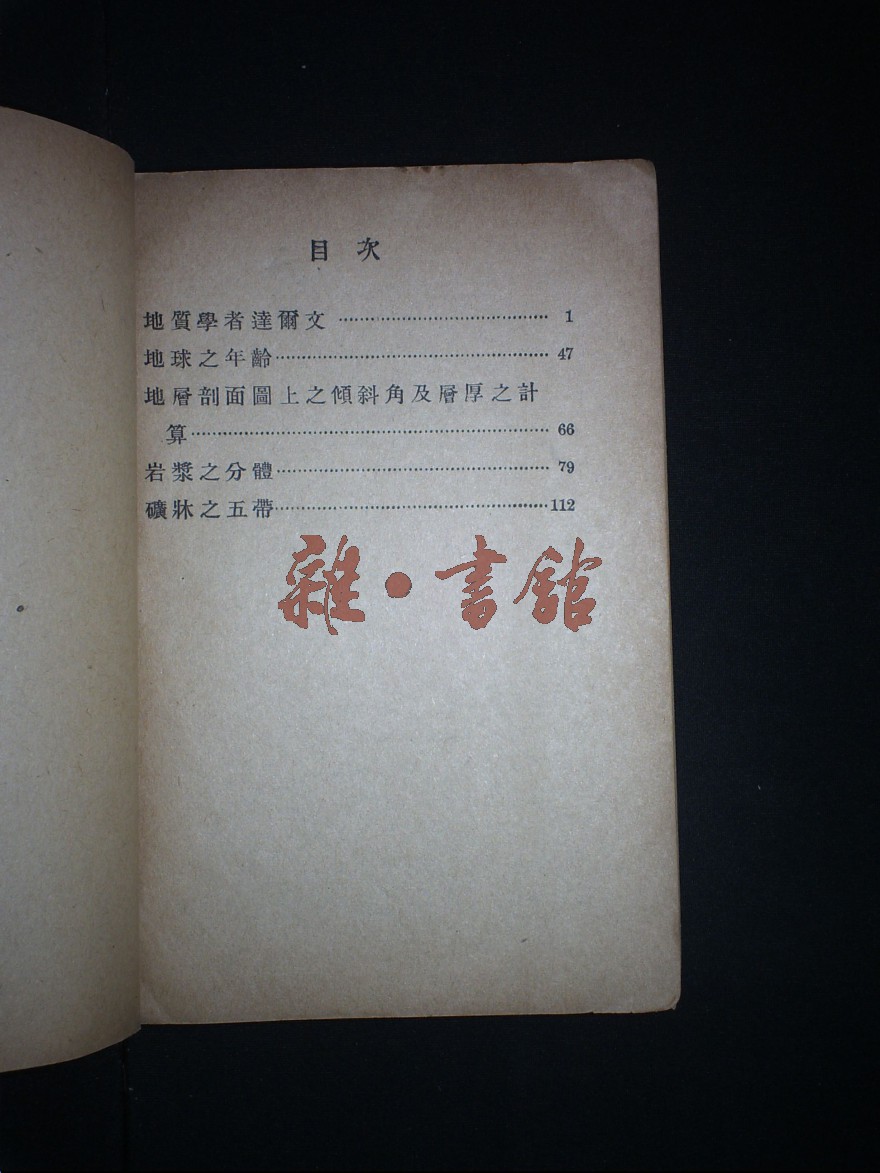 目次
地質學者達爾文 ································ 1
地球之年齡 ································ 47
地層剖面圖上之傾斜角及層厚之計
算 ································ 66
岩漿之分體 ································ 79
礦牀之五帶 ································ 112
雜·書館